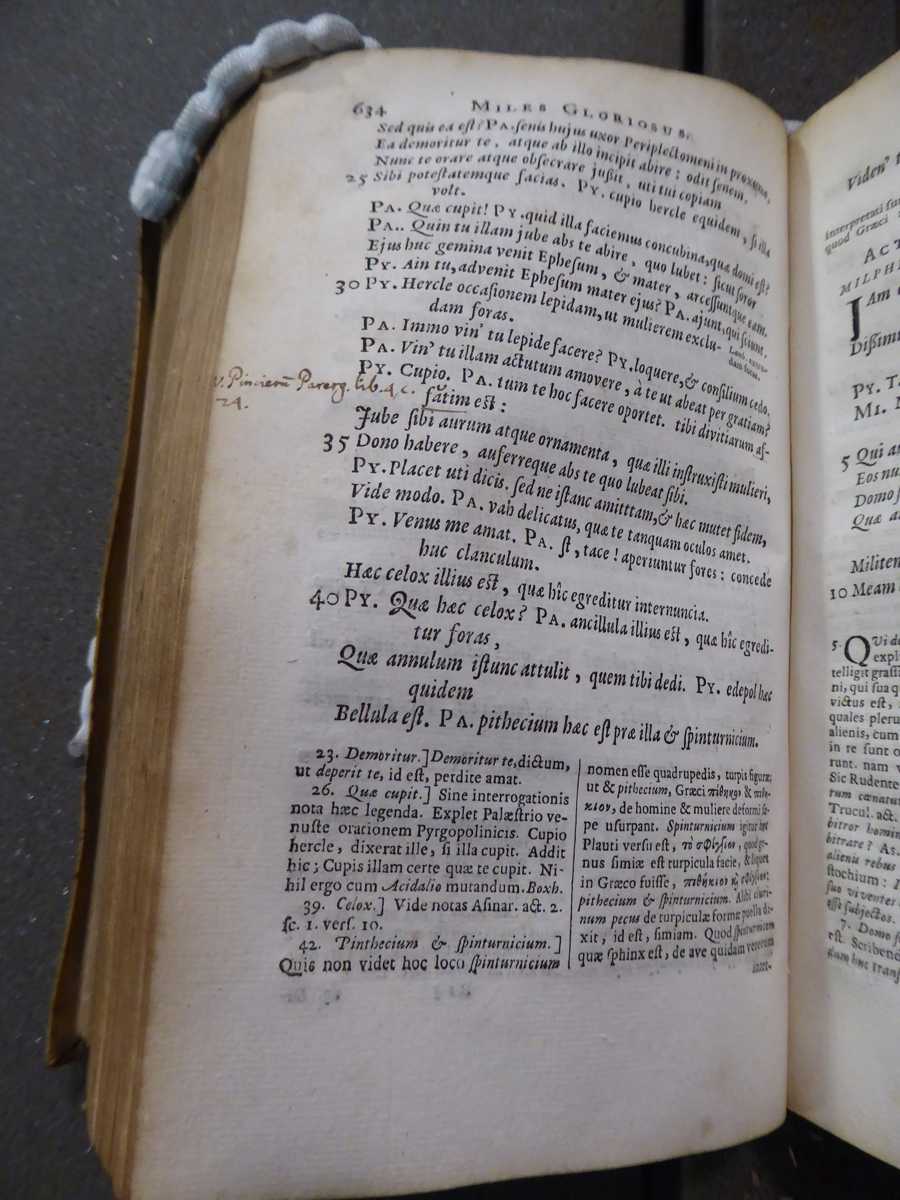 634 MILES GLORIOSUS.
Sed quis ea est? PA. senis hujus uxor Periplectomeni in proxumo,
Ea demoritur te, atque ab illo incipit abire: odit senem,
Nunc te orare atque obsecrare jussit, uti tui copiam
25 Sibi potestatemque facias. PY. cupio hercle equidem, si illa
volt.
PA. Quæ cupit! PY. quid illa faciemus concubina, quæ domi est?
PA.. Quin tu illam jube abs te abire, quo lubet: sicut soror
Ejus huc gemina venit Ephesum, & mater, arcessuntque eam.
PY. Ain tu, advenit Ephesum mater ejus? PA. ajunt, qui sciunt.
30 PY. Hercle occasionem lepidam, ut mulierem exclu-
dam foras.
PA. Immo vin' tu lepide facere? PY. loquere, & consilium cedo.
PA. Vin' tu illam actutum amovere, à te ut abeat per gratiam?
PY. Cupio. PA. tum te hoc facere oportet. tibi divitiarum af-
v. Pincierū Parerg. lib. 4 c.
24.
fatim est:
Jube sibi aurum atque ornamenta, quæ illi instruxisti mulieri,
35 Dono habere, auferreque abs te quo lubeat sibi.
PY. Placet uti dicis. sed ne istanc amittam, & hæc mutet fidem,
Vide modo. PA. vah delicatus, quæ te tanquam oculos amet.
PY. Venus me amat. PA. st, tace! aperiuntur fores: concede
huc clanculum.
Hæc celox illius est, quæ hîc egreditur internuncia.
40 PY. Quæ hæc celox? PA. ancillula illius est, quæ hîc egredi-
tur foras,
Quæ annulum istunc attulit, quem tibi dedi. PY. edepol hæc
quidem
Bellula est. PA. pithecium hæc est præ illa & spinturnicium.
23. Demoritur.] Demoritur te, dictum,
ut deperit te, id est, perdite amat.
26. Quæ cupit.] Sine interrogationis
nota hæc legenda. Explet Palæstrio ve-
nuste orationem Pyrgopolinicis. Cupio
hercle, dixerat ille, si illa cupit. Addit
hic; Cupis illam certe quæ te cupit. Ni-
hil ergo cum Acidalio mutandum. Boxh.
39. Celox.] Vide notas Asinar. act. 2.
sc. 1. vers. 10.
42. Pinthecium & spinturnicium.]
Quis non videt hoc loco spinturnicium
nomen esse quadrupedis, turpis figuræ;
ut & pithecium, Græci πίθηκον & πιθή-
κιον, de homine & muliere deformi sæ-
pe usurpant. Spinturnicium igitur hoc
Plauti versu est, τὸ σφίγγιον, quod ge-
nus simiæ est turpicula facie, & liquet
in Græco fuisse, πιθήκιον ϗ σφίγγιον;
pithecium & spinturnicium. Alibi cluri-
num pecus de turpiculæ formæ puella di-
xit, id est, simiam. Quod spinturnicium
quæ sphinx est, de ave quidam veterum
Viden'
interpretati
quod Græci
ACT
MILPHI
JAm
Dissimu
PY.
MI.
5 Qui
Eos
Domo
Quæ
Militem
10 Meam
5. QVi
expli
telligit grassi
ni, qui sua
victus est,
quales pleru
alienis, cum
in re sunt
runt. nam
Sic Rudente
rum cœnatu
Trucul. act.
bitror homin
bitrare? As.
alienis rebus
stochium:
suo viventes
esse subjectos.
7. Domo
est. Scribend